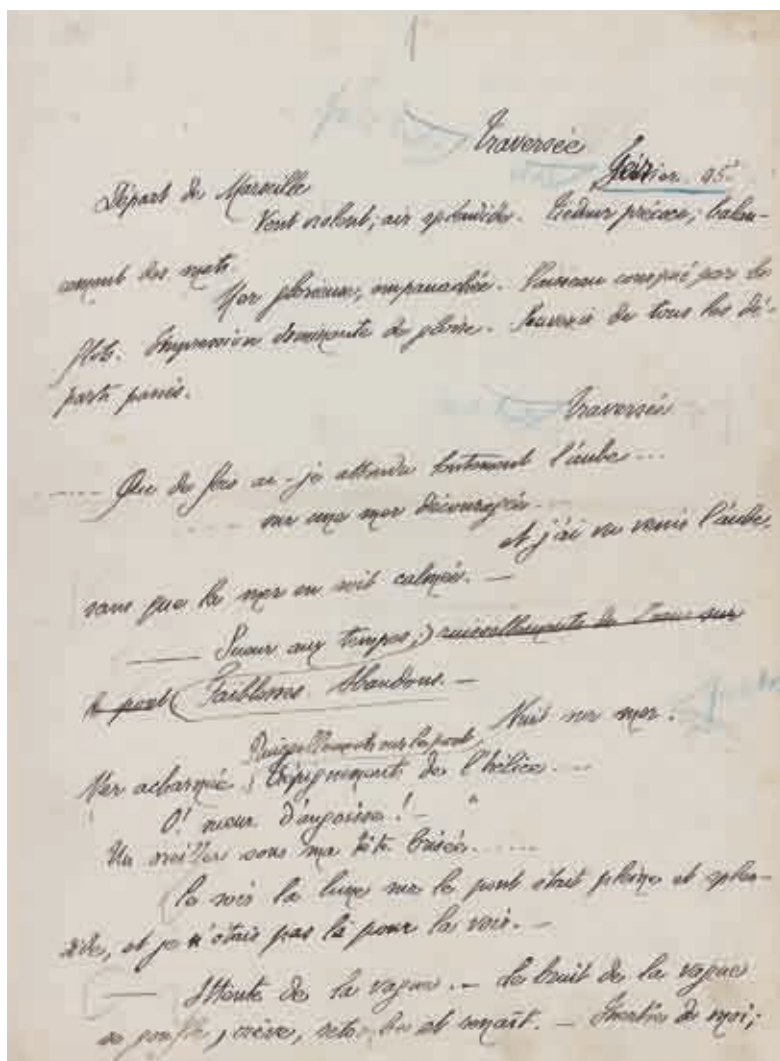 1
Traversée
Février 95
Départ de Marseille
Vent violent; air splendide. Tiédeur précoce; balan-
cement des mats
Mer glorieuse, empanachée. Vaisseau conspué par les
flots. Impression dominante de gloire. Souvenir de tous les dé-
parts passés.
Traversée
..... Que de fois ai-je attendu l'aube ...
sur une mer découragée.
et j'ai vu venir l'aube,
sans que la mer en soit calmée. —
— Sueur aux tempes; ruissellements de l'eau sur
le pont Faiblesses. Abandons. —
Nuit sur mer.
Ruissellements sur le pont
Mer acharnée; trépignements de l'hélice....
O! sueur d'angoisse! —
Un oreiller sous ma tête brisée......
Ce soir la lune sur le pont était pleine et splen-
dide, et je n'étais pas là pour la voir. —
— Attente de la vague. — Le bruit de la vague
se gonfle, crève, retombe et renaît. — Inertie de moi;